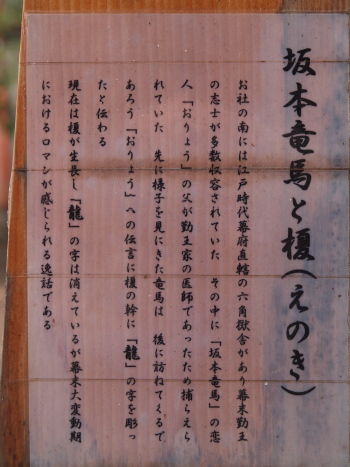 坂本竜馬と榎(えのき)
お社の南には江戸時代幕府直轄の六角獄舎があり幕末勤王
の志士が多数収容されていた その中に「坂本竜馬」の恋
人「おりょう」の父が勤王家の医師であったため捕らえら
れていた 先に様子を見にきた竜馬は 後に訪ねてくるで
あろう「おりょう」への伝言に榎の幹に「龍」の字を彫っ
たと伝わる
現在は榎が生長し「龍」の字は消えているが幕末大変動期
におけるロマンが感じられる逸話である